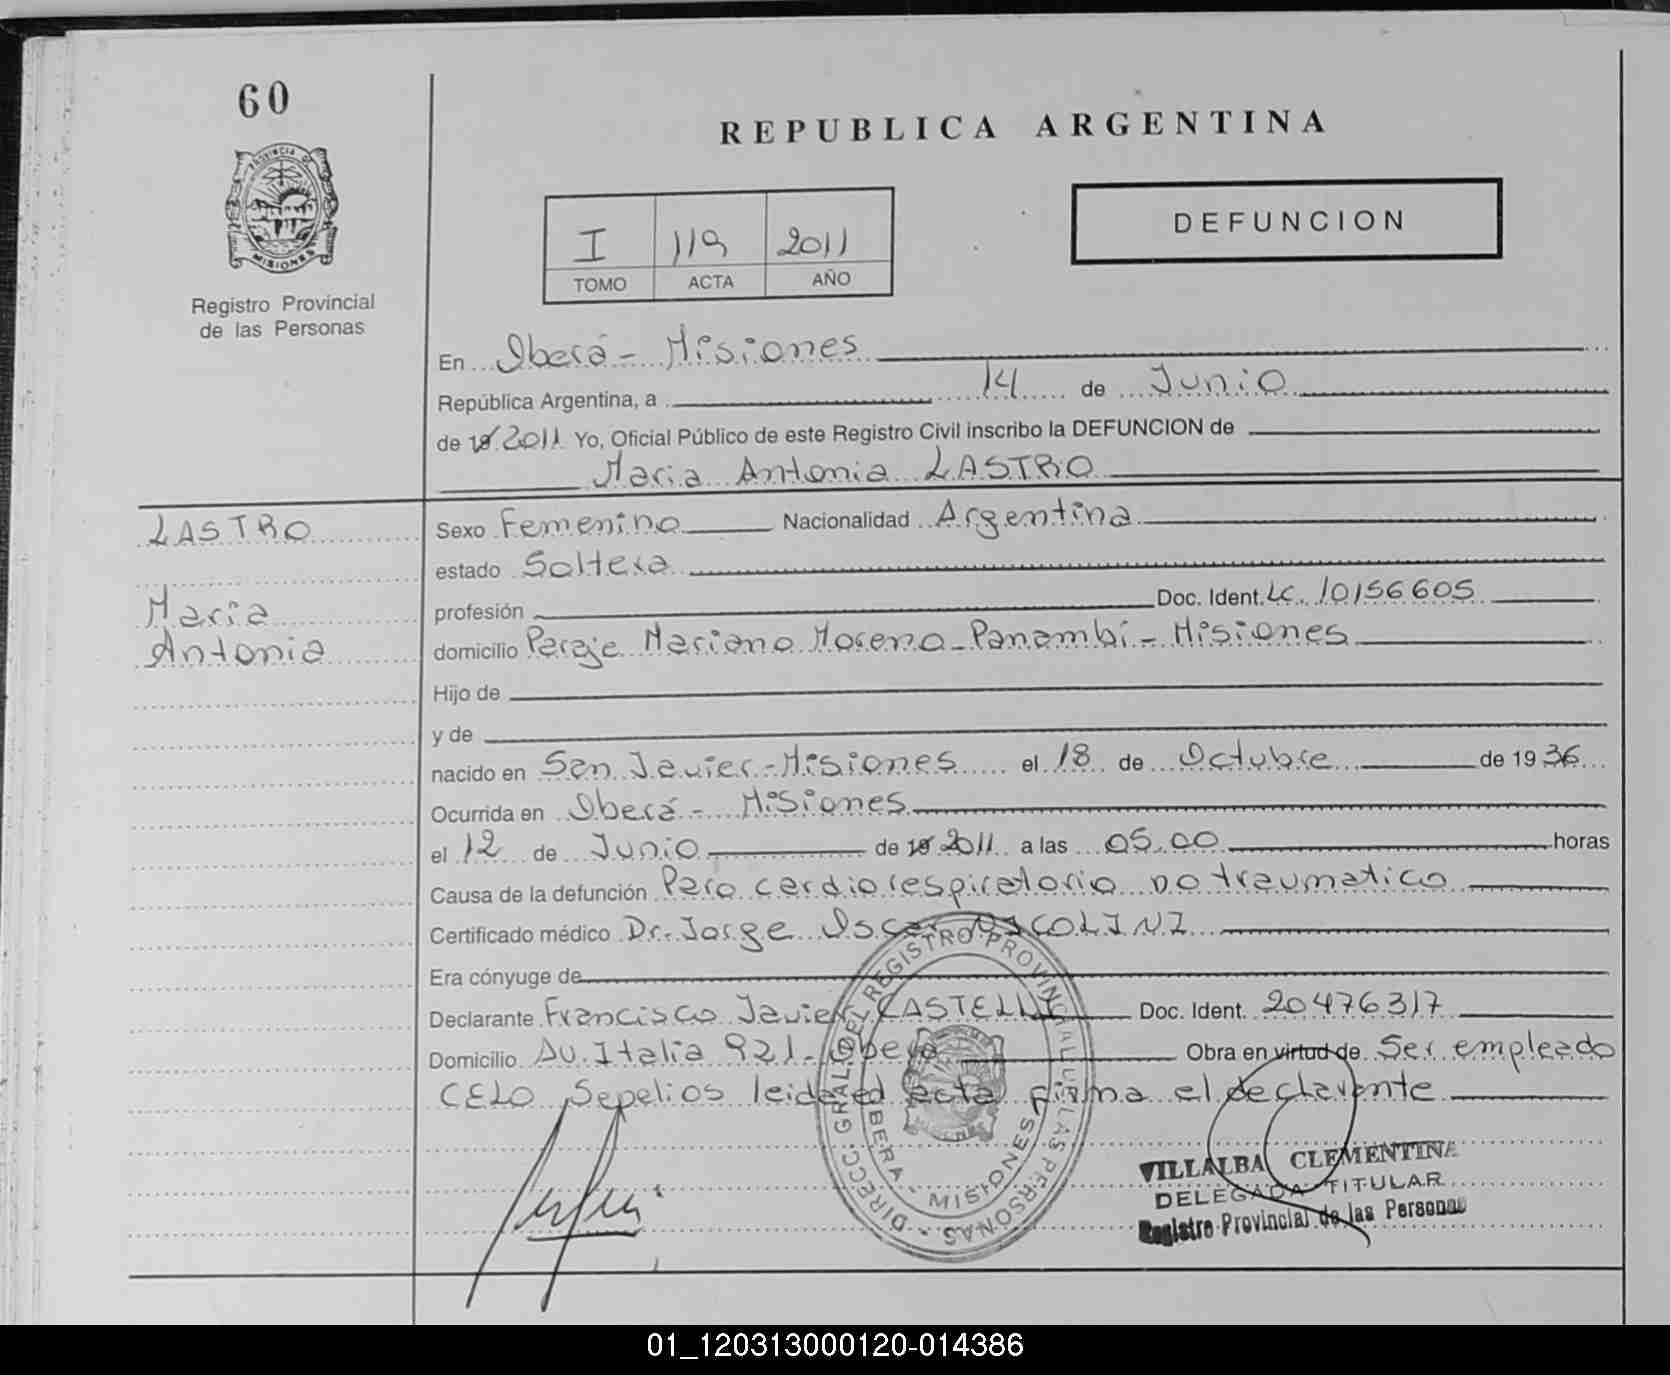 60
REPUBLICA ARGENTINA
PROVINCIA DE
MISIONES
Registro Provincial
de las Personas
DEFUNCION
I 119 2011
TOMO ACTA AÑO
En Oberá - Misiones
República Argentina, a 14 de Junio
de 19 2011 Yo, Oficial Público de este Registro Civil inscribo la DEFUNCION de
Maria Antonia LASTRO
LASTRO
Maria
Antonia
Sexo Femenino Nacionalidad Argentina
estado Soltera
profesión Doc. Ident. LC. 10156605
domicilio Paraje Mariano Moreno - Panambí - Misiones
Hijo de
y de
nacido en San Javier - Misiones el 18 de Octubre de 1936
Ocurrida en Oberá - Misiones
el 12 de Junio de 19 2011 a las 05.00 horas
Causa de la defunción Paro cardiorespiratorio no traumatico
Certificado médico Dr. Jorge Oscar NICOLINI
Era cónyuge de
Declarante Francisco Javier CASTELLI Doc. Ident. 20476317
Domicilio Av. Italia 921 - Obera Obra en virtud de Ser empleado
CELO Sepelios leida ed acta firma el declarante
DIRECC. GRAL. DEL REGISTRO PROVINCIAL DE LAS PERSONAS
OBERA - MISIONES
VILLALBA CLEMENTINA
DELEGADA TITULAR
Registro Provincial de las Personas
01_120313000120-014386